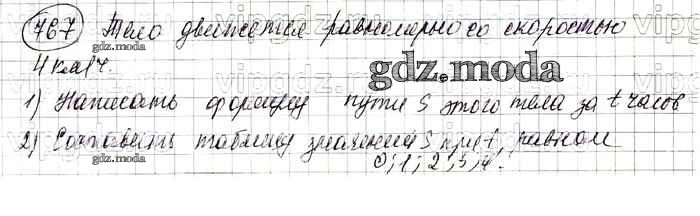 767 Тело движется равномерно со скоростью
4 км/ч.
gdz.moda
1) Написать формулу пути S этого тела за t часов
2) Составить таблицу значений S при t, равном
0; 1; 2; 3; 4.